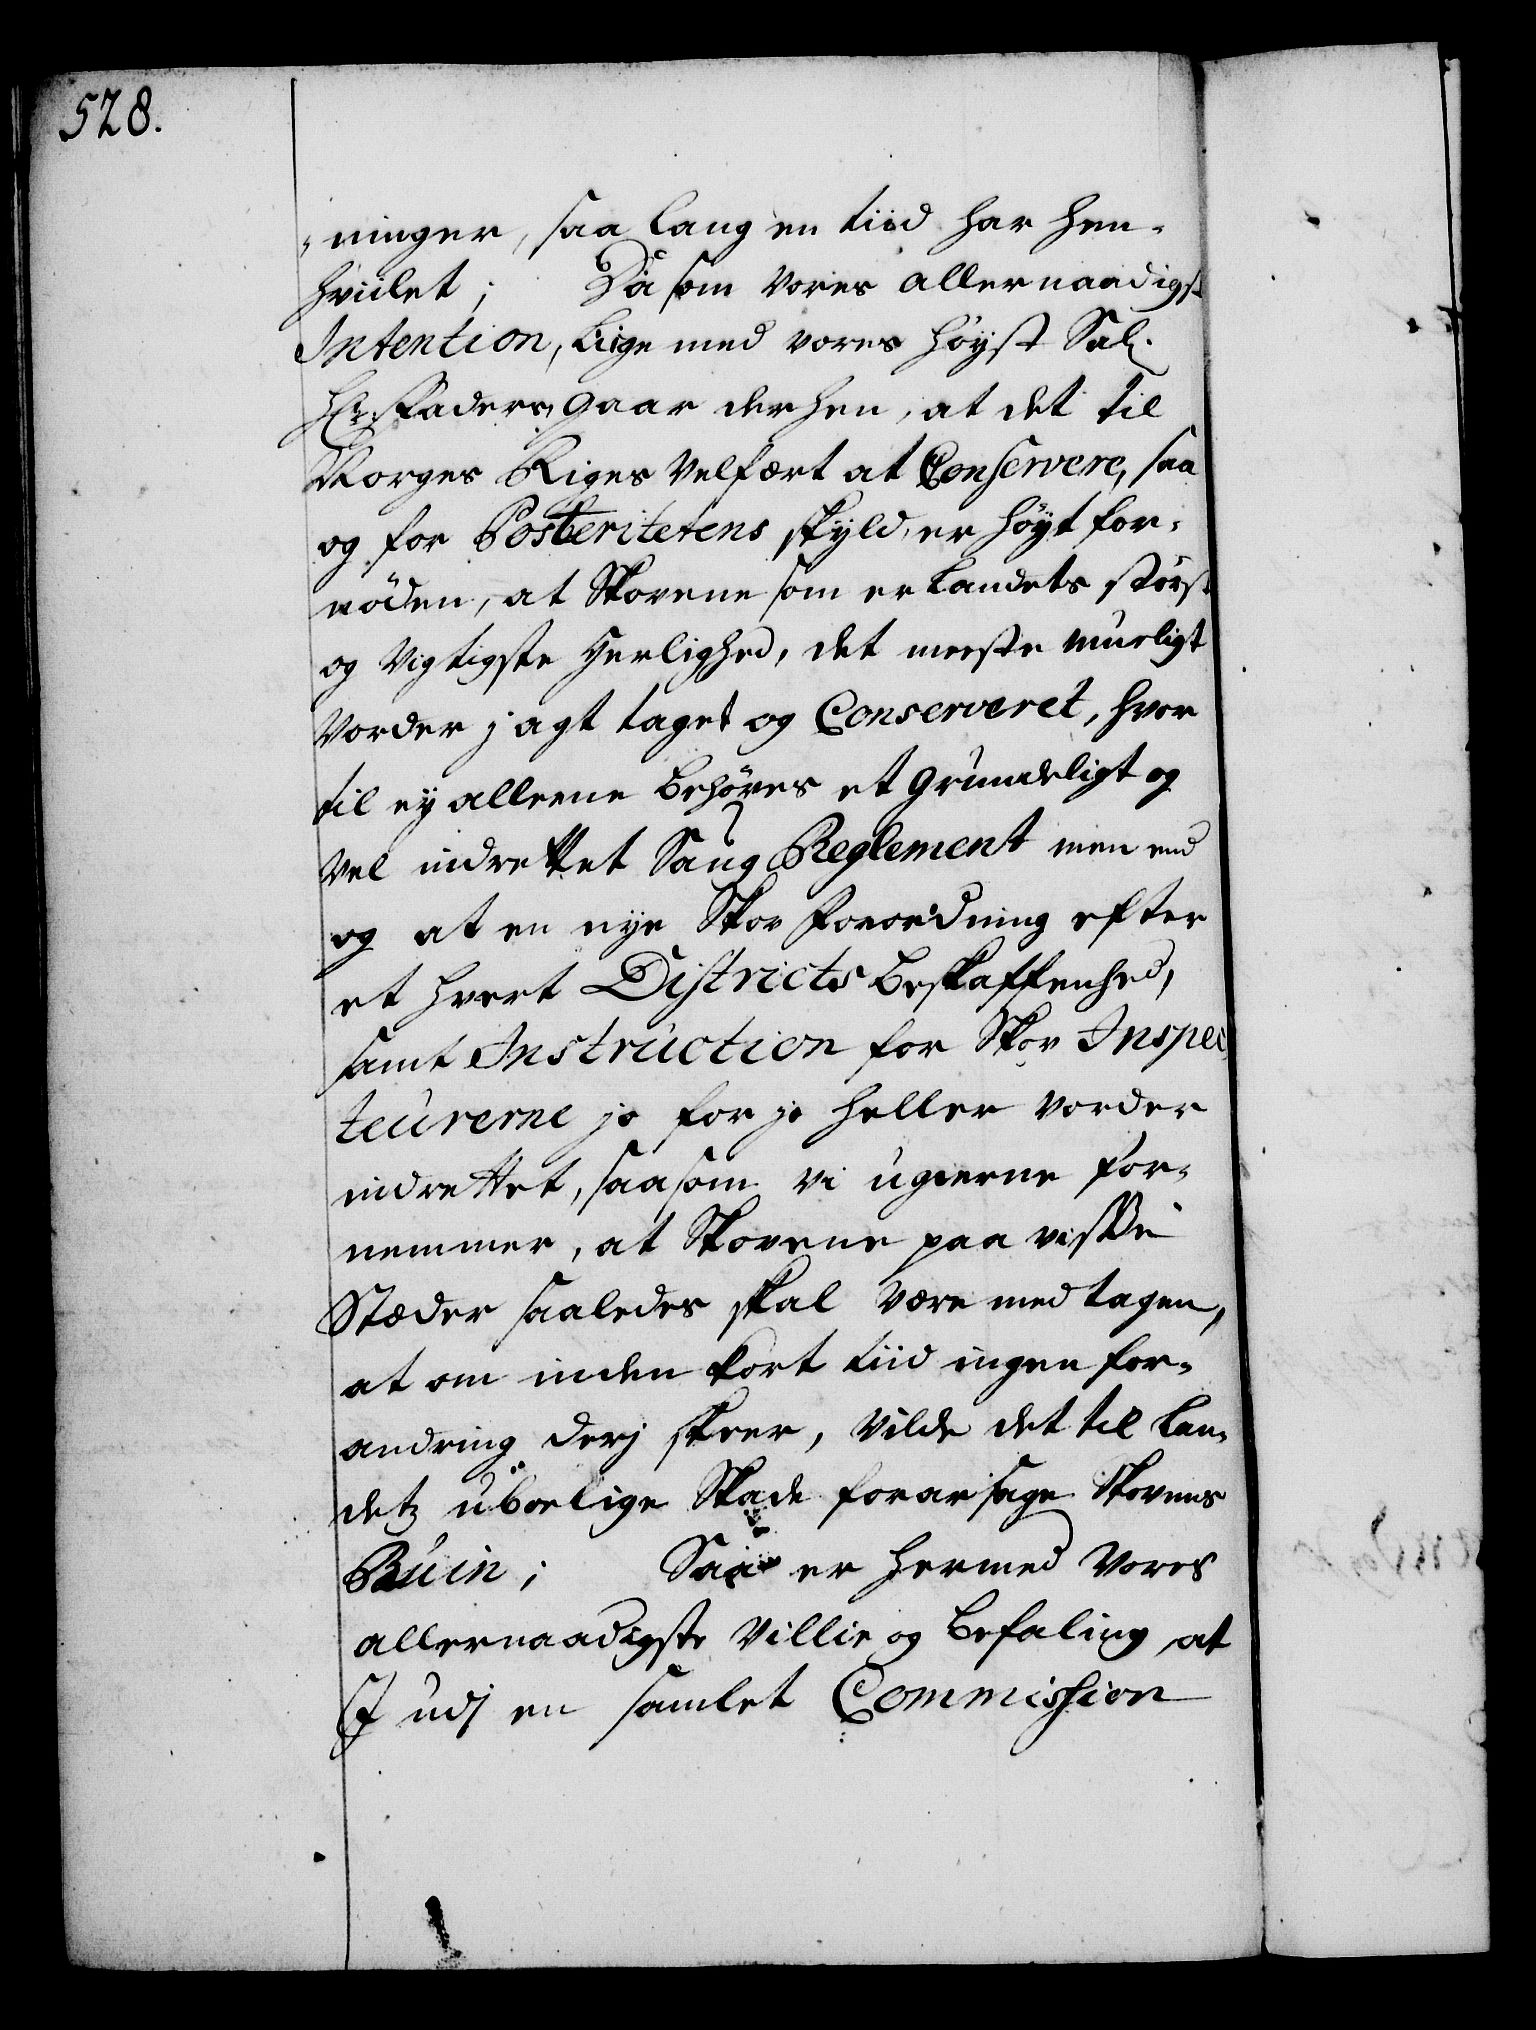 528.
-ninger, saa lang en tiid har hen-
hviilet; Da som vores allernaadigst
Intention, liige med vores höyst Sal.
Hr. Faders, gaar derhen, at det til
Norges Riges Velfært at Conservere, saa
og for Posteritetens skyld, er höyt for-
nöden, at Skovene som er Landets störst
og Vigtigste Herlighed, det meeste mueligt
Vorder j agt taget og Conserveret, hvor
til ey alleene behöves et grundeligt og
vel indrettet Saug Reglement men end
og at en nye Skov Forordning efter
et hvert Districts beskaffenhed,
samt Instruction for Skov Inspec
teurerne jo for jo heller vorder
indrettet, saasom vi ugierne for-
nemmer, at Skovene paa visse
Stæder saaledes skal være medtagen,
at om inden kort tiid ingen for-
andring derj skeer, vilde det til Lan-
detz ubodelige Skade foraarsage Skovenes
Ruin; Saa er hermed Vores
allernaadigste Villie og Befaling, at
I udj en samlet Commission